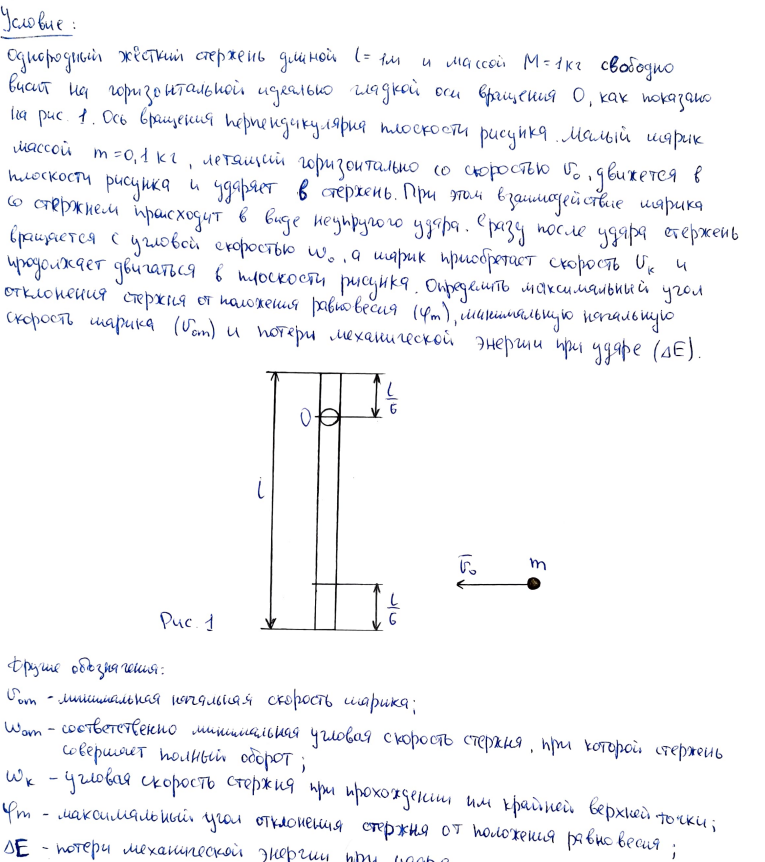 Условие:
Однородный жёсткий стержень длиной l = 1м и массой M = 1 кг свободно
висит на горизонтальной идеально гладкой оси вращения O, как показано
на рис. 1. Ось вращения перпендикулярна плоскости рисунка. Малый шарик
массой m = 0,1 кг, летящий горизонтально со скоростью v₀, движется в
плоскости рисунка и ударяет в стержень. При этом взаимодействие шарика
со стержнем происходит в виде неупругого удара. Сразу после удара стержень
вращается с угловой скоростью ω₀, а шарик приобретает скорость v_к и
продолжает двигаться в плоскости рисунка. Определить максимальный угол
отклонения стержня от положения равновесия (φm), минимальную начальную
скорость шарика (v₀m) и потери механической энергии при ударе (ΔE).
l/6
O
l
v̄₀ m
l/6
Рис. 1
Другие обозначения:
v₀m - минимальная начальная скорость шарика;
ω₀m - соответственно минимальная угловая скорость стержня, при которой стержень
совершает полный оборот;
ω_к - угловая скорость стержня при прохождении им крайней верхней точки;
φm - максимальный угол отклонения стержня от положения равновесия;
ΔE - потери механической энергии при ударе